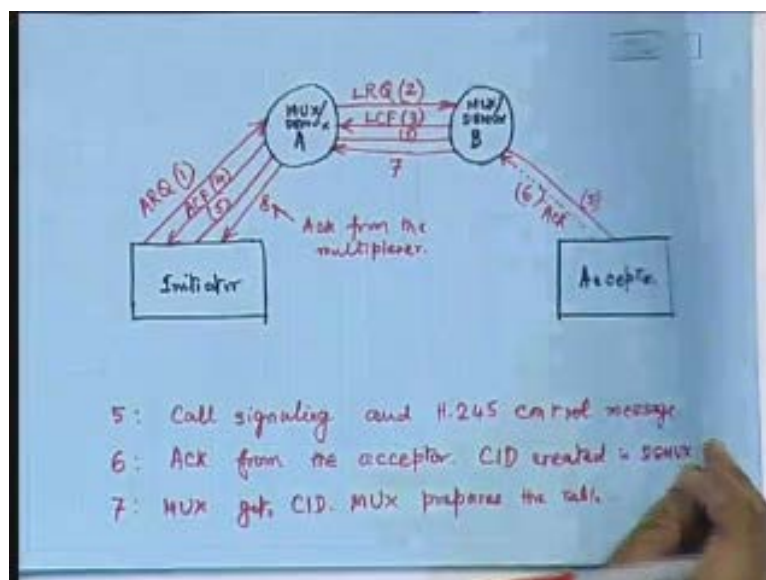 LRQ (2)
MUX/
A
LCF (3)
MUX/
DEMUX
B
7
ARQ (1)
ACF (4)
(5)
8
(6) Ack
(5)
Ack from the
multiplexer.
Initiator
5: Call signaling and H.245 control message
6: Ack from the acceptor. CID created in DEMUX
7: MUX gets CID. MUX prepares the table.